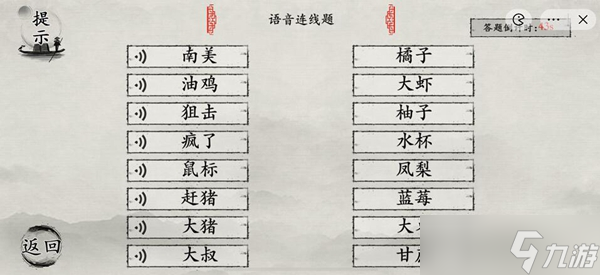 提示
语音连线题
答题倒计时:
南美
橘子
油鸡
大虾
狙击
柚子
疯了
水杯
鼠标
凤梨
赶猪
蓝莓
大猪
大
大叔
甘
返回
九游